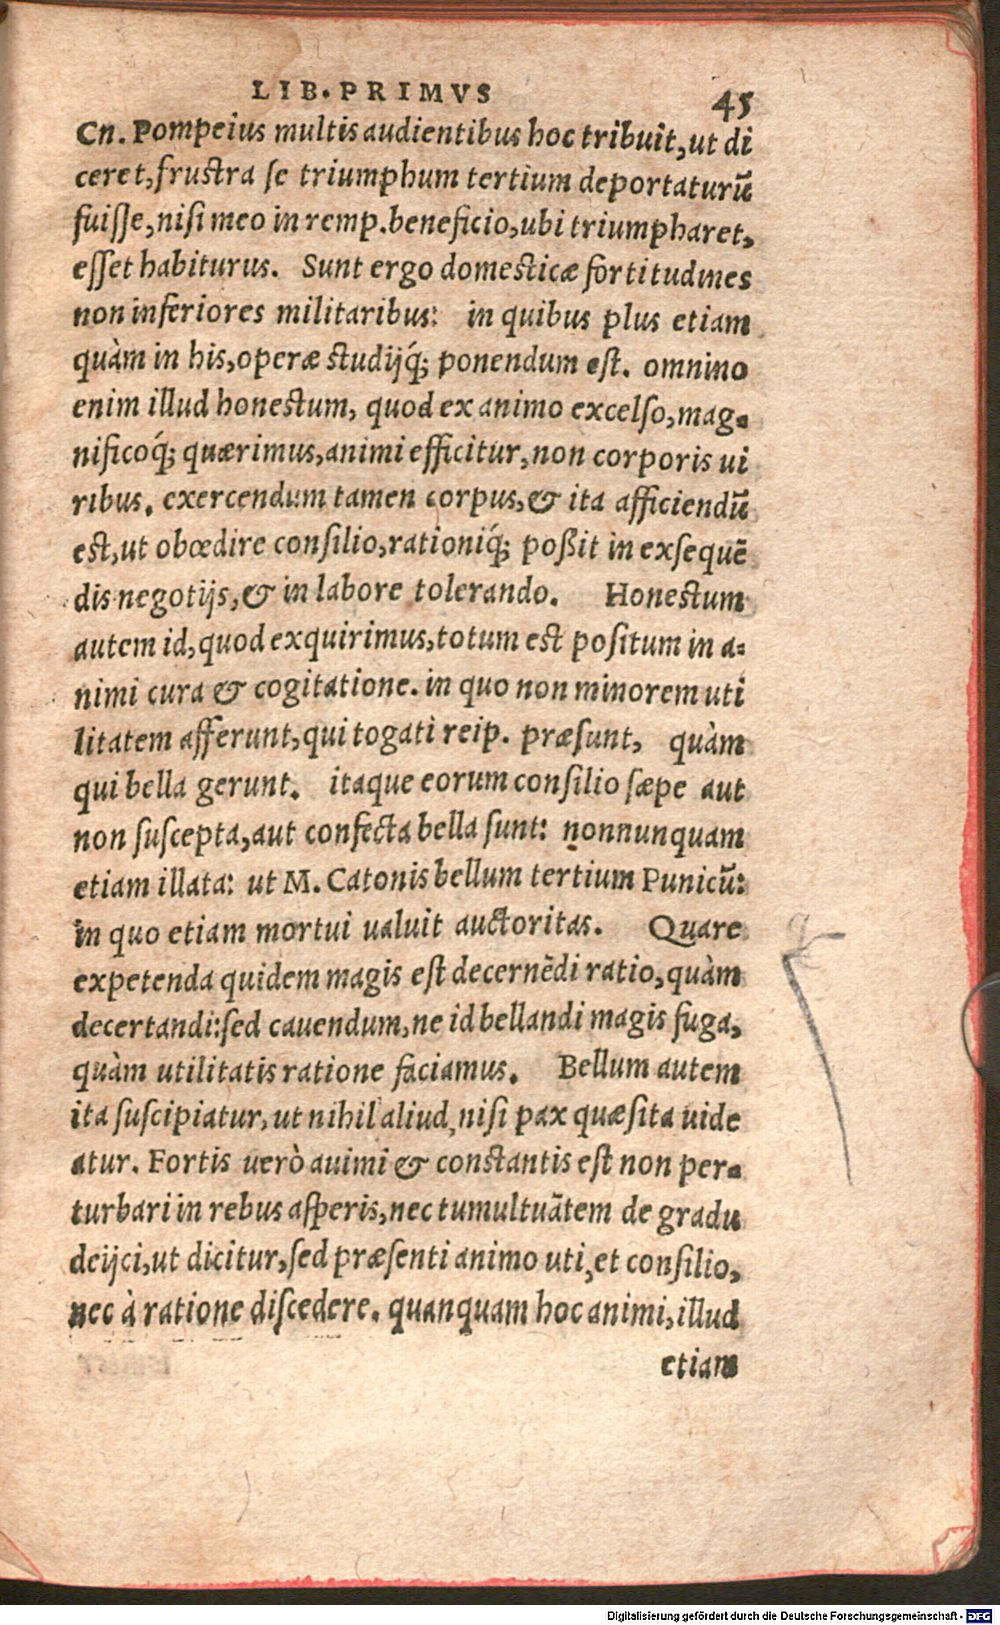 LIB. PRIMVS 45
Cn. Pompeius multis audientibus hoc tribuit, ut di
ceret, frustra se triumphum tertium deportaturũ
fuisse, nisi meo in remp. beneficio, ubi triumpharet,
esset habiturus. Sunt ergo domesticæ fortitudines
non inferiores militaribus: in quibus plus etiam
quàm in his, operæ studijq́; ponendum est. omnino
enim illud honestum, quod ex animo excelso, mag-
nificoq́; quærimus, animi efficitur, non corporis ui
ribus. exercendum tamen corpus, & ita afficiendũ
est, ut obœdire consilio, rationiq́; poßit in exsequẽ
dis negotijs, & in labore tolerando. Honestum
autem id, quod exquirimus, totum est positum in a-
nimi cura & cogitatione. in quo non minorem uti
litatem afferunt, qui togati reip. præsunt, quàm
qui bella gerunt. itaque eorum consilio sæpe aut
non suscepta, aut confecta bella sunt: nonnunquam
etiam illata: ut M. Catonis bellum tertium Punicũ:
in quo etiam mortui ualuit auctoritas. Quare
expetenda quidem magis est decernẽdi ratio, quàm
decertandi: sed cauendum, ne id bellandi magis fuga,
quàm utilitatis ratione faciamus. Bellum autem
ita suscipiatur, ut nihil aliud, nisi pax quæsita uide
atur. Fortis uerò auimi & constantis est non per-
turbari in rebus asperis, nec tumultuãtem de gradu
deijci, ut dicitur, sed præsenti animo uti, et consilio,
nec à ratione discedere. quanquam hoc animi, illud
etiam
Digitalisierung gefördert durch die Deutsche Forschungsgemeinschaft - DFG